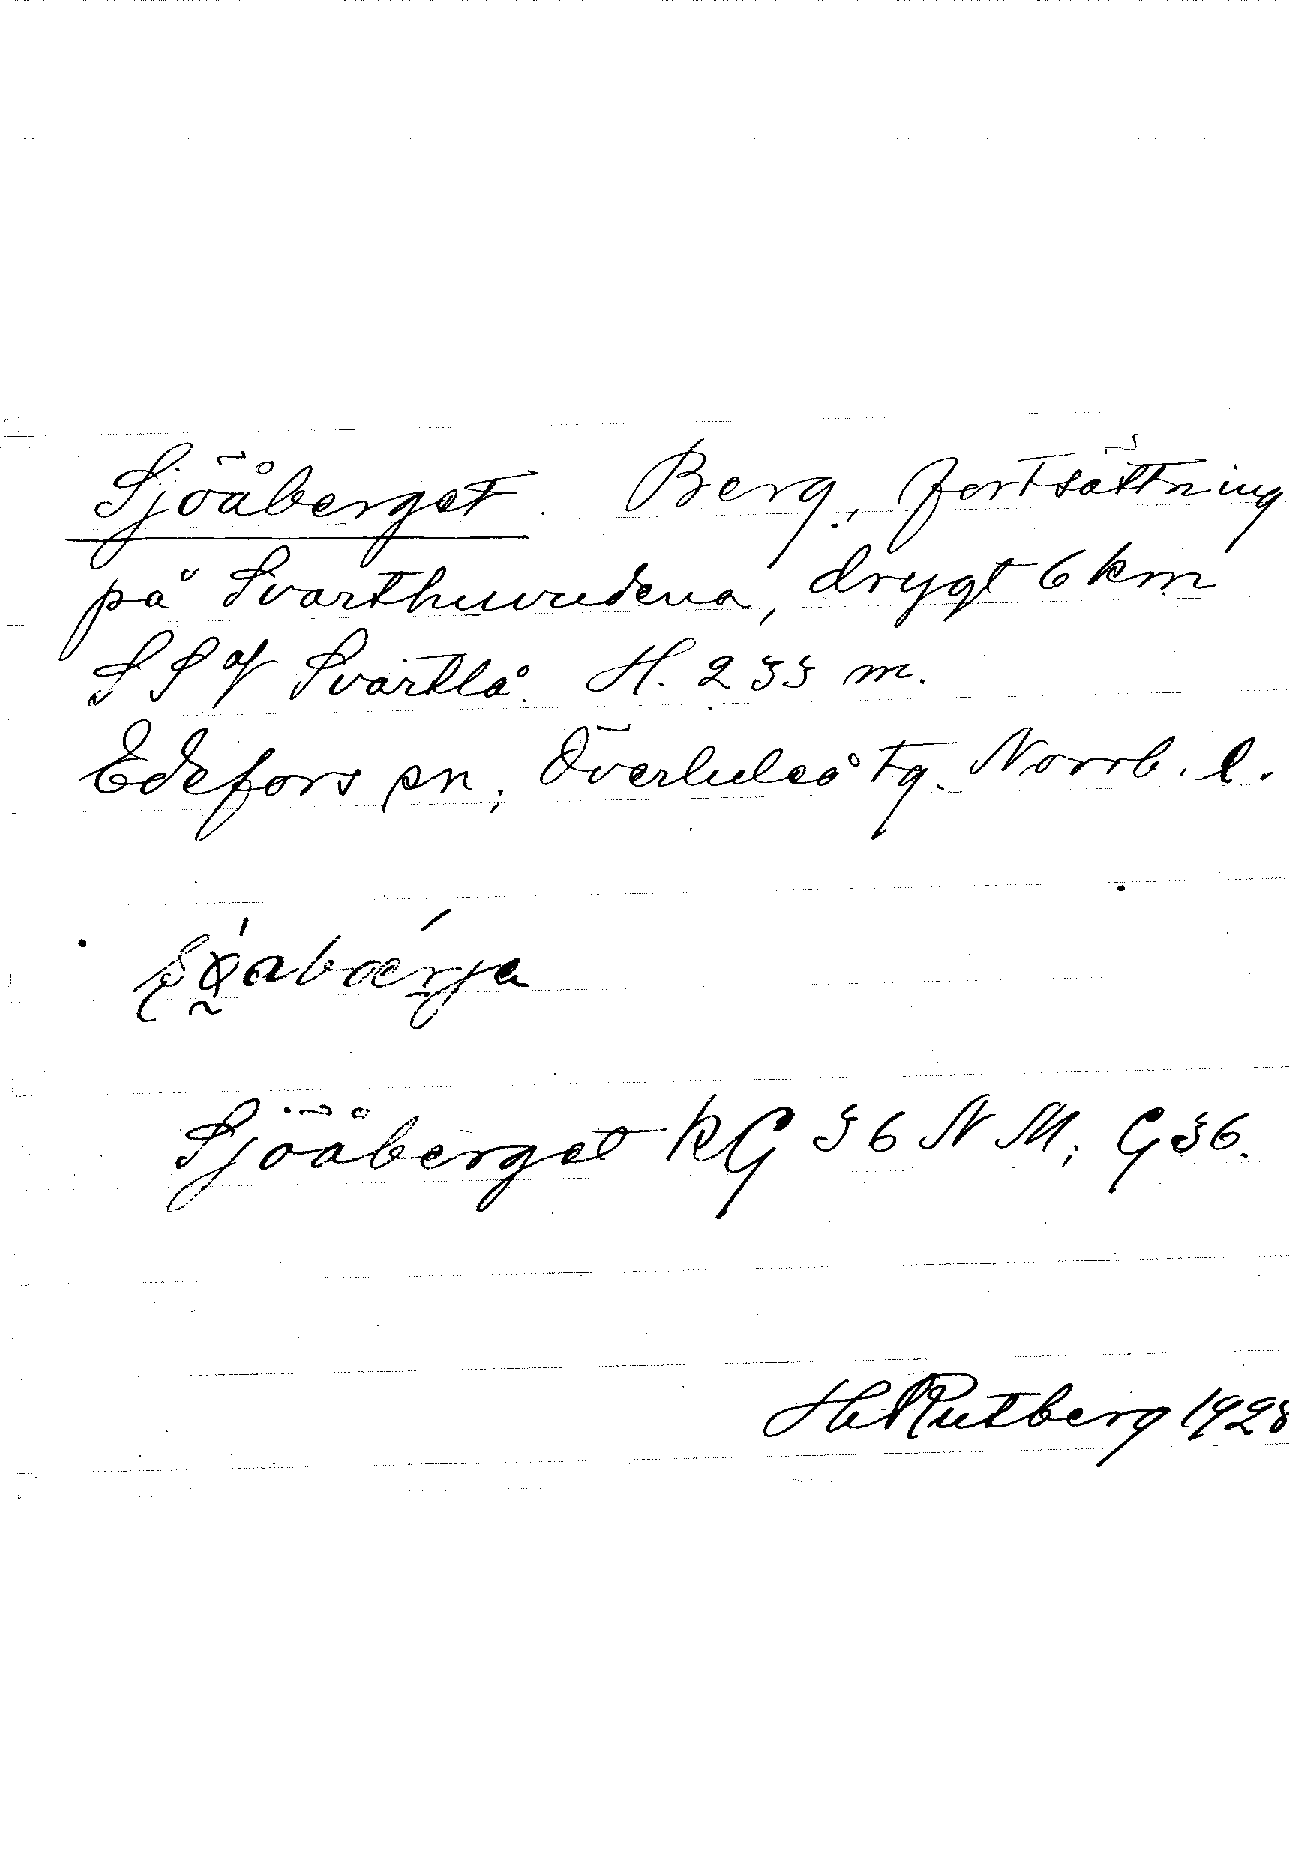 Sjöåberget. Berg, fortsättning
på Svarthuvudena, drygt 6 km
S S of Svartlå. H. 233 m.
Edefors sn, Överluleå tg. Norrb. l.
Sjöåberget KG 36 N M; G 36.
H Rutberg 1928